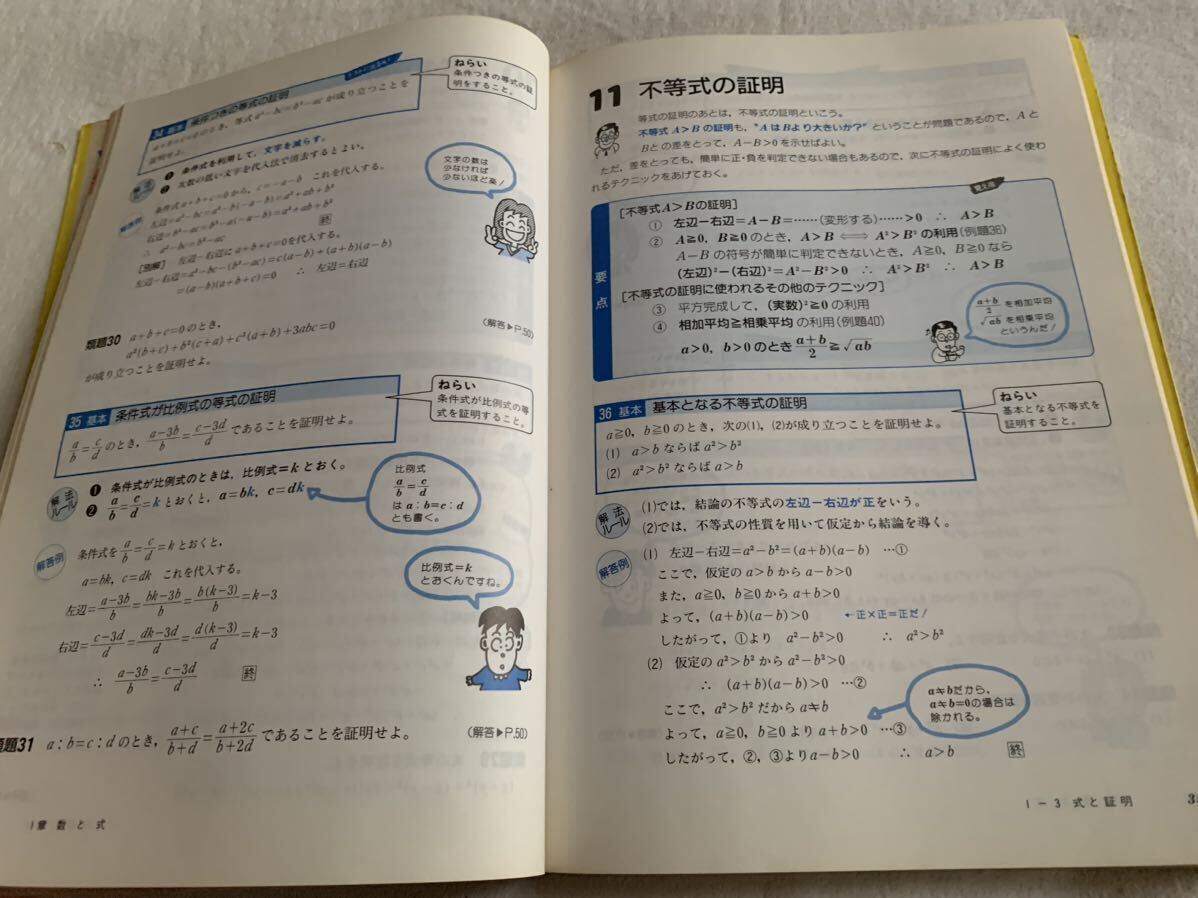 ねらい
条件つきの等式の証
明をすること。
34 基本 条件つきの等式の証明
a+b+c=0のとき，等式a²−bc=b²−acが成り立つことを
証明せよ。
解法ルール
❶ 条件式を利用して，文字を減らす。
❷ 次数の低い文字を代入法で消去するとよい。
文字の数は
少なければ
少ないほど楽！
解答例
条件式a+b+c=0から，c=−a−b これを代入する。
左辺=a²−bc=a²−b(−a−b)=a²+ab+b²
右辺=b²−ac=b²−a(−a−b)=a²+ab+b²
∴ a²−bc=b²−ac 終
[別解] 左辺−右辺にa+b+c=0を代入する。
左辺−右辺=a²−bc−(b²−ac)=c(a−b)+(a+b)(a−b)
=(a−b)(a+b+c)=0 ∴ 左辺=右辺
類題30 a+b+c=0のとき，
(解答▶P.50)
a²(b+c)+b²(c+a)+c²(a+b)+3abc=0
が成り立つことを証明せよ。
ねらい
条件式が比例式の等
式を証明すること。
35 基本 条件式が比例式の等式の証明
a/b=c/dのとき，(a−3b)/b=(c−3d)/dであることを証明せよ。
解法ルール
❶ 条件式が比例式のときは，比例式=kとおく。
❷ a/b=c/d=kとおくと，a=bk，c=dk
比例式
a/b=c/d
はa：b=c：d
とも書く。
解答例
条件式をa/b=c/d=kとおくと，
a=bk，c=dk これを代入する。
左辺=(a−3b)/b=(bk−3b)/b=b(k−3)/b=k−3
右辺=(c−3d)/d=(dk−3d)/d=d(k−3)/d=k−3
∴ (a−3b)/b=(c−3d)/d 終
比例式=k
とおくんですね。
類題31 a：b=c：dのとき，(a+c)/(b+d)=(a+2c)/(b+2d)であることを証明せよ。
(解答▶P.50)
1章 数と式
11 不等式の証明
等式の証明のあとは，不等式の証明といこう。
不等式A>Bの証明も，"AはBより大きいか？"ということが問題であるので，Aと
Bとの差をとって，A−B>0を示せばよい。
ただ，差をとっても，簡単に正・負を判定できない場合もあるので，次に不等式の証明によく使わ
れるテクニックをあげておく。
覚え得
要点
[不等式A>Bの証明]
① 左辺−右辺=A−B=……(変形する)……>0 ∴ A>B
② A≧0，B≧0のとき，A>B ⟺ A²>B²の利用(例題38)
A−Bの符号が簡単に判定できないとき，A≧0，B≧0なら
(左辺)²−(右辺)²=A²−B²>0 ∴ A²>B² ∴ A>B
[不等式の証明に使われるその他のテクニック]
③ 平方完成して，(実数)²≧0の利用
④ 相加平均≧相乗平均の利用(例題40)
a>0，b>0のとき(a+b)/2≧√ab
(a+b)/2を相加平均
√abを相乗平均
というんだ！
36 基本 基本となる不等式の証明
ねらい
基本となる不等式を
証明すること。
a≧0，b≧0のとき，次の(1)，(2)が成り立つことを証明せよ。
(1) a>bならばa²>b²
(2) a²>b²ならばa>b
解法ルール
(1)では，結論の不等式の左辺−右辺が正をいう。
(2)では，不等式の性質を用いて仮定から結論を導く。
解答例
(1) 左辺−右辺=a²−b²=(a+b)(a−b) …①
ここで，仮定のa>bからa−b>0
また，a≧0，b≧0からa+b>0
よって，(a+b)(a−b)>0 ←正×正=正だ！
したがって，①より a²−b²>0 ∴ a²>b²
(2) 仮定のa²>b²からa²−b²>0
∴ (a+b)(a−b)>0 …②
ここで，a²>b²だからa≠b
よって，a≧0，b≧0よりa+b>0 …③
したがって，②，③よりa−b>0 ∴ a>b 終
a≠bだから，
a=b=0の場合は
除かれる。
1−3 式と証明